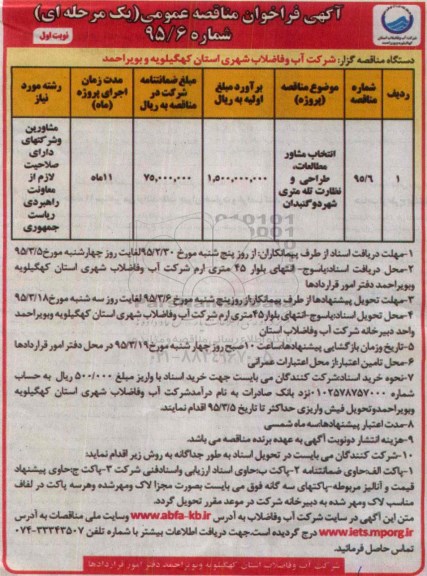 آگهی فراخوان مناقصه عمومی(یک مرحله ای)
شماره ۹۵/۶
نوبت اول
دستگاه مناقصه گزار: شرکت آب وفاضلاب شهری استان کهگیلویه و بویراحمد
ردیف
شماره مناقصه
موضوع مناقصه (پروژه)
برآورد مبلغ اولیه به ریال
مبلغ ضمانتنامه شرکت در مناقصه به ریال
مدت زمان اجرای پروژه (ماه)
رشته مورد نیاز
۱
۹۵/۶
انتخاب مشاور مطالعات، طراحی و نظارت تله متری شهردوگنبدان
۱,۵۰۰,۰۰۰,۰۰۰
۷۵,۰۰۰,۰۰۰
۱۱ماه
مشاورین وشرکتهای دارای صلاحیت لازم از معاونت راهبردی ریاست جمهوری
۱-مهلت دریافت اسناد از طرف پیمانکاران: از روز پنج شنبه مورخ ۹۵/۲/۳۰لغایت روز چهارشنبه مورخ۹۵/۳/۵
۲-محل دریافت اسناد:یاسوج- انتهای بلوار ۴۵ متری ارم شرکت آب وفاضلاب شهری استان کهگیلویه
وبویراحمد دفتر امور قراردادها
۳-مهلت تحویل پیشنهادها از طرف پیمانکاراز:روزپنج شنبه مورخ ۹۵/۳/۶لغایت روز سه شنبه مورخ۹۵/۳/۱۸
۴-محل تحویل اسناد:یاسوج-انتهای بلوار۴۵متری ارم شرکت آب وفاضلاب شهری استان کهگیلویه وبویراحمد
واحد دبیرخانه شرکت آب وفاضلاب استان
۵-تاریخ وزمان بازگشایی پیشنهادها:ساعت ۱۰صبح روز چهار شنبه مورخ۹۵/۳/۱۹در محل دفتر امور قراردادها
۶-محل تامین اعتبار:از محل اعتبارات عمرانی
۷-نحوه خرید اسناد:شرکت کنندگان می بایست جهت خرید اسناد با واریز مبلغ ۵۰۰/۰۰۰ ریال به حساب
شماره ۰۱۰۲۵۷۸۷۵۷۰۰۰نزد بانک صادرات به نام درآمدشرکت آب وفاضلاب شهری استان کهگیلویه
وبویراحمدوتحویل فیش واریزی حداکثر تا تاریخ ۹۵/۳/۵ اقدام نمایند.
۸-مدت اعتبار پیشنهادها:سه ماه شمسی
۹-هزینه انتشار دونوبت آگهی به عهده برنده مناقصه می باشد.
۱۰-شرکت کنندگان می بایست در تحویل اسناد به طور جداگانه به روش زیر اقدام نمایند:
۱-پاکت الف:حاوی ضمانتنامه ۲-پاکت ب:حاوی اسناد ارزیابی واسنادفنی شرکت ۳-پاکت ج:حاوی پیشنهاد
قیمت و آنالیز مربوطه-پاکتهای سه گانه فوق می بایست بصورت مجزا لاک ومهرشده وهرسه پاکت در لفاف
مناسب لاک ومهر شده به دبیرخانه شرکت در موعد مقرر تحویل گردد.
متن این آگهی در سایت شرکت آب وفاضلاب به آدرس www.abfa-kb.ir وسایت ملی مناقصات به آدرس
www.iets.mporg.ir درج گردیده است.جهت دریافت اطلاعات بیشتر با شماره تلفن ۳۳۳۴۳۵۰۷-۰۷۴
تماس حاصل فرمائید.
شرکت آب وفاضلاب استان کهگیلویه وبویراحمد دفتر امور قراردادها